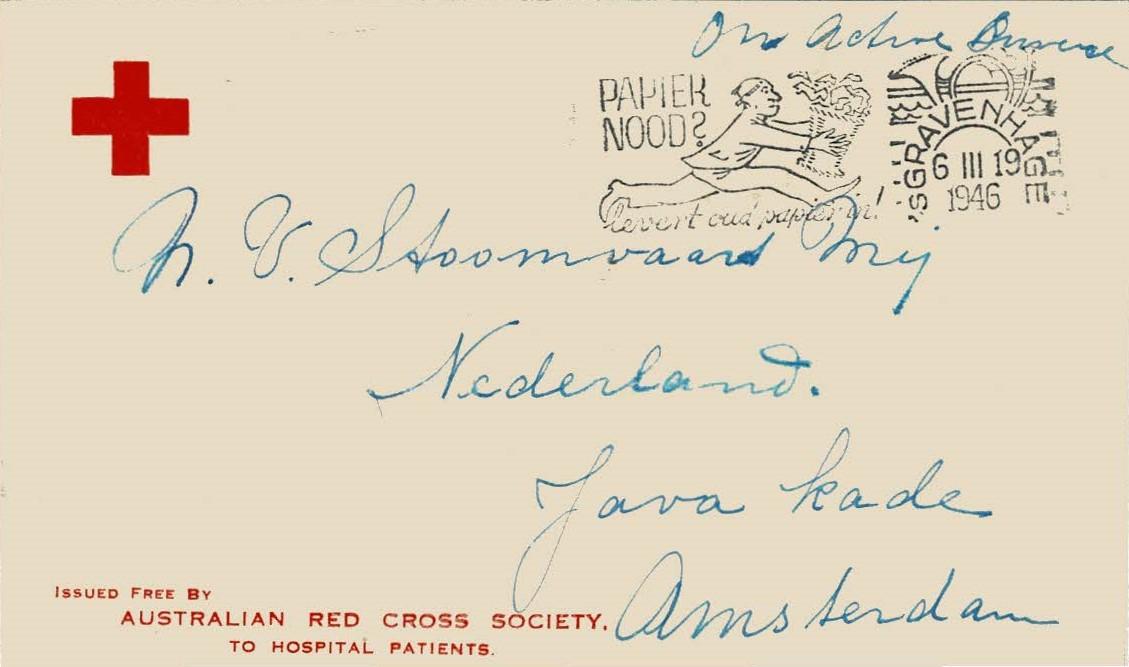 On Active Service
PAPIER
NOOD?
levert oud papier in!
'SGRAVENHAGE
6 III 19
1946
N.V. Stoomvaart Mij
Nederland.
Java kade
Amsterdam
ISSUED FREE BY
AUSTRALIAN RED CROSS SOCIETY.
TO HOSPITAL PATIENTS.